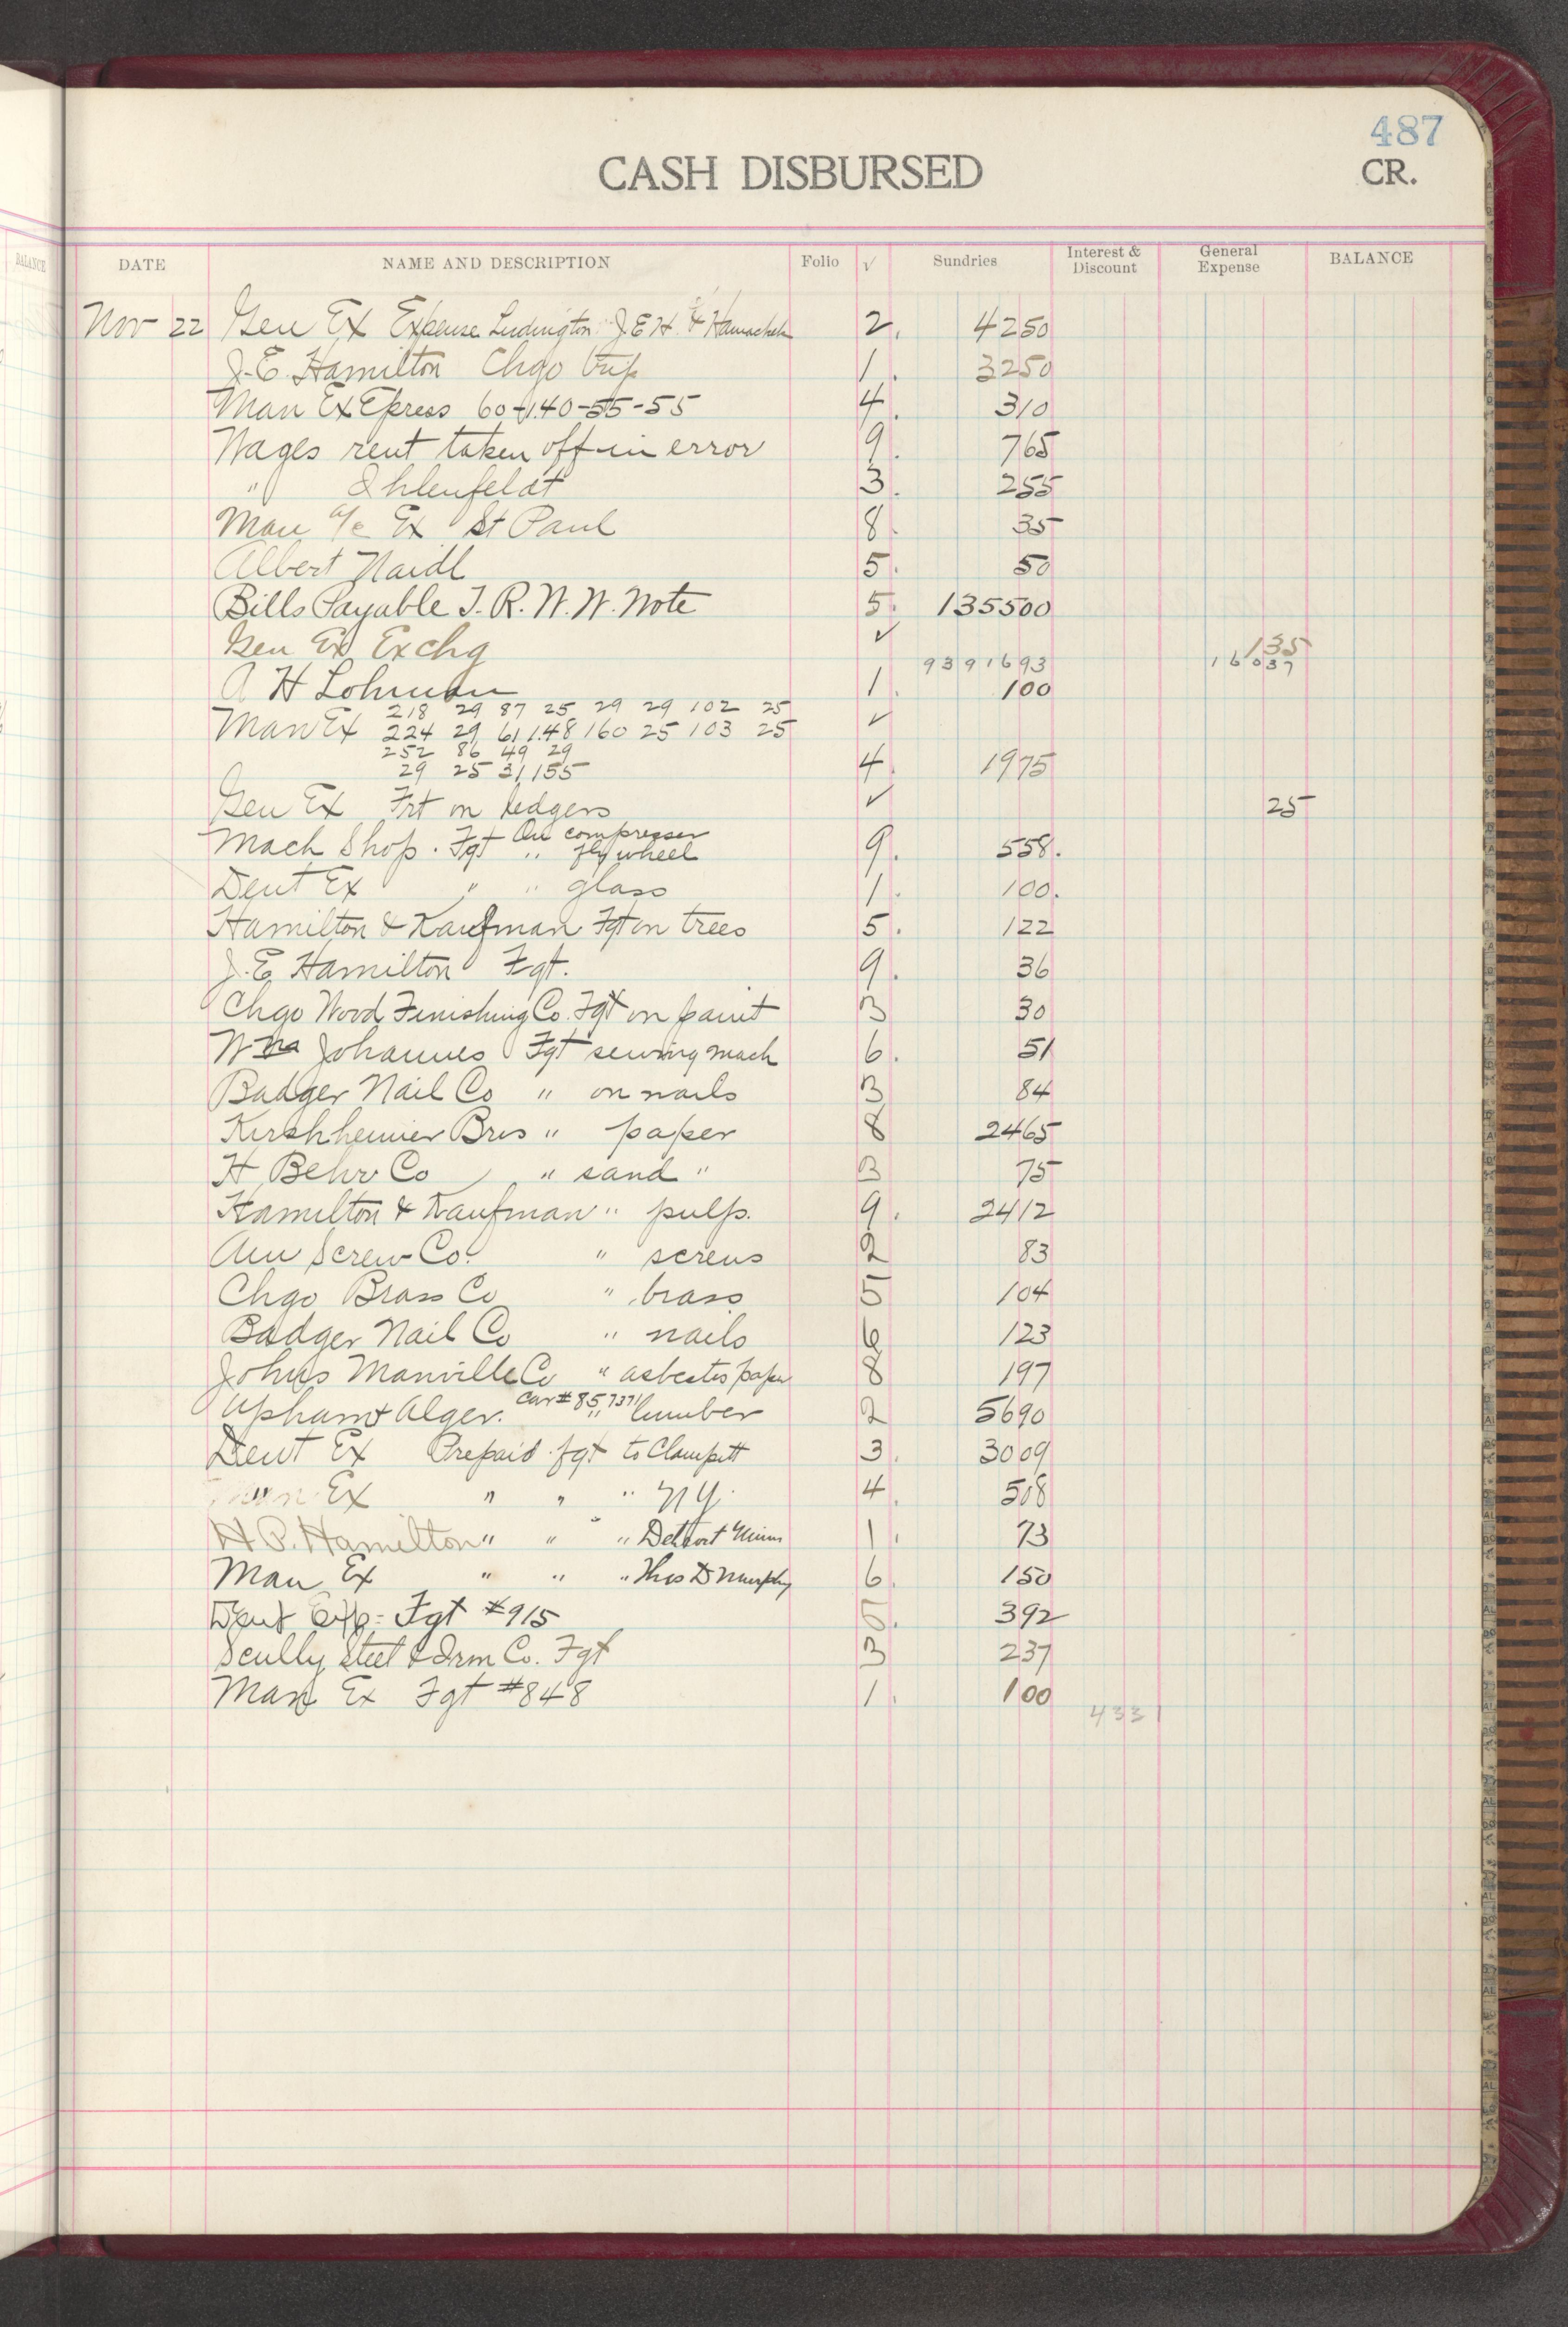 487
CASH DISBURSED
CR.
BALANCE
DATE NAME AND DESCRIPTION Folio √ Sundries Interest & Discount General Expense BALANCE
Nov 22 Gen Ex Expense Ludington J E H & Hamachek 2. 4250
J. E. Hamilton Chgo trip 1. 3250
Man Ex Epress 60-1.40-55-55 4. 310
Wages rent taken off in error 9. 765
" Ihlenfeldt 3. 255
Man a/c Ex St Paul 8. 35
Albert Naidl 5. 50
Bills Payable T. R. W. W. Note 5. 135500
Gen Ex Exchg √ 135
9391693 16037
A H Lohman 1. 100
218 29 87 25 29 29 102 25
Man Ex 224 29 61 1.48 160 25 103 25 √
252 86 49 29
29 25 31 155 4. 1975
Gen Ex Frt on ledgers √ 25
On compresser
Mach Shop. Fgt " fly wheel 9. 558.
Dent Ex " " glass 1. 100.
Hamilton & Kaufman Fgt on trees 5. 122
J. E. Hamilton Fgt. 9. 36
Chgo Wood Finishing Co. Fgt on paint 3 30
Wm Johannes Fgt sewing mach 6. 51
Badger Nail Co " on nails 3 84
Kirshheimer Bros " paper 8 2465
H Behr Co " sand " 3 75
Hamilton & Kaufman " pulp. 9. 2412
Am Screw Co. " screws 2 83
Chgo Brass Co " brass 5 104
Badger Nail Co " nails 6 123
Johns Manville Co " asbestos paper 8 197
Car # 857371
Upham & Alger. " lumber 2 5690
Dent Ex Prepaid fgt to Clampitt 3. 3009
Man Ex " " " N Y. 4. 508
H. P. Hamilton " " " Detroit Minn 1. 73
Man Ex " " " Thos D Murphy 6. 150
Dent Exp = Fgt #915 5. 392
Scully Steel & Iron Co. Fgt 3 237
Man Ex Fgt #848 1. 100
4331